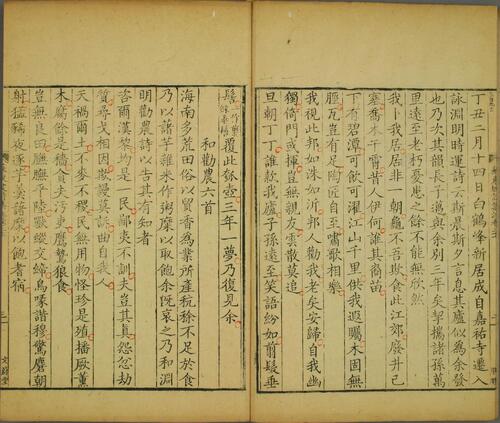 丁丑二月十四日白鶴峰新居成自嘉祐寺遷入
詠淵明時運詩云斯晨斯夕言息其廬似為余發
也乃次其韻長子邁與余別三年矣挈攜諸孫萬
里遠至老朽憂患之餘不能無欣然
我卜我居居非一朝龜不吾欺食此江郊廢井已
塞喬木干霄昔人伊何誰其裔苗
下有碧潭可飲可濯江山千里供我遐矚木固無
脛瓦豈有足陶匠自至嘯歌相樂
我視此邦如洙如沂邦人勸我老矣安歸自我幽
獨倚門或揮豈無親友雲散莫追
旦朝丁丁誰款我廬子孫遠至笑語紛如翦髮垂
髻覆此瓠壺三年一夢乃復見余
和勸農六首
海南多荒田俗以貿香為業所產秔稌不足於食
乃以藷芋雜米作粥糜以取飽余既哀之乃和淵
明勸農詩以告其有知者
咨爾漢黎均是一民鄙夷不訓夫豈其真怨忿劫
質尋戈相因欺謾莫訴曲自我人
天禍爾土不麥不稷民無用物怪珍是殖播厥薰
木腐餘是穡貪夫污吏鷹鷙狼食
豈無良田膴膴平陸獸蹤交締鳥喙諧穆驚麏朝
射猛豨夜逐芋羹藷糜以飽耆宿